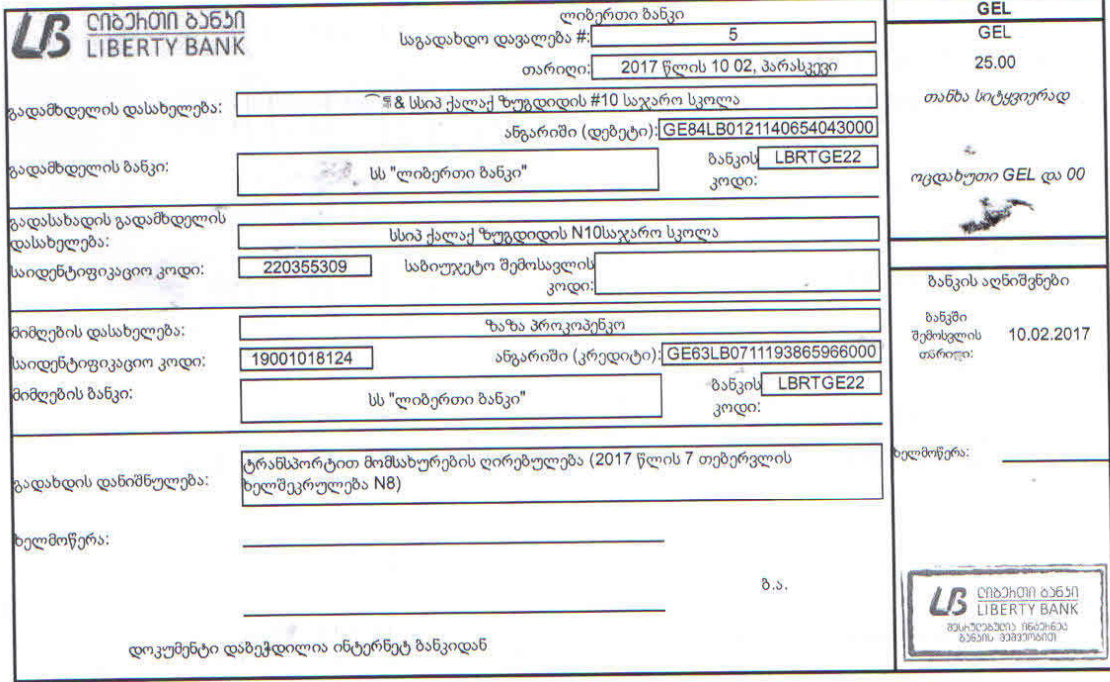 ლიბერთი ბანკი
LIBERTY BANK
ლიბერთი ბანკი
საგადახდო დავალება #: 5
თარიღი: 2017 წლის 10 02, პარასკევი
გადამხდელის დასახელება: & სსიპ ქალაქ ზუგდიდის #10 საჯარო სკოლა
ანგარიში (დებეტი): GE84LB0121140654043000
გადამხდელის ბანკი: სს "ლიბერთი ბანკი" ბანკის კოდი: LBRTGE22
გადასახადის გადამხდელის
დასახელება: სსიპ ქალაქ ზუგდიდის N10საჯარო სკოლა
საიდენტიფიკაციო კოდი: 220355309 საბიუჯეტო შემოსავლის
კოდი:
მიმღების დასახელება: ზაზა პროკოპენკო
საიდენტიფიკაციო კოდი: 19001018124 ანგარიში (კრედიტი): GE63LB0711193865966000
მიმღების ბანკი: სს "ლიბერთი ბანკი" ბანკის კოდი: LBRTGE22
გადახდის დანიშნულება: ტრანსპორტით მომსახურების ღირებულება (2017 წლის 7 თებერვლის
ხელშეკრულება N8)
ხელმოწერა:
ბ.ა.
დოკუმენტი დაბეჭდილია ინტერნეტ ბანკიდან
GEL
GEL
25.00
თანხა სიტყვიერად
ოცდახუთი GEL და 00
ბანკის აღნიშვნები
ბანკში
შემოსვლის 10.02.2017
თარიღი:
ხელმოწერა:
ლიბერთი ბანკი
LIBERTY BANK
შესრულებულია ინტერნეტ
ბანკის მეშვეობით